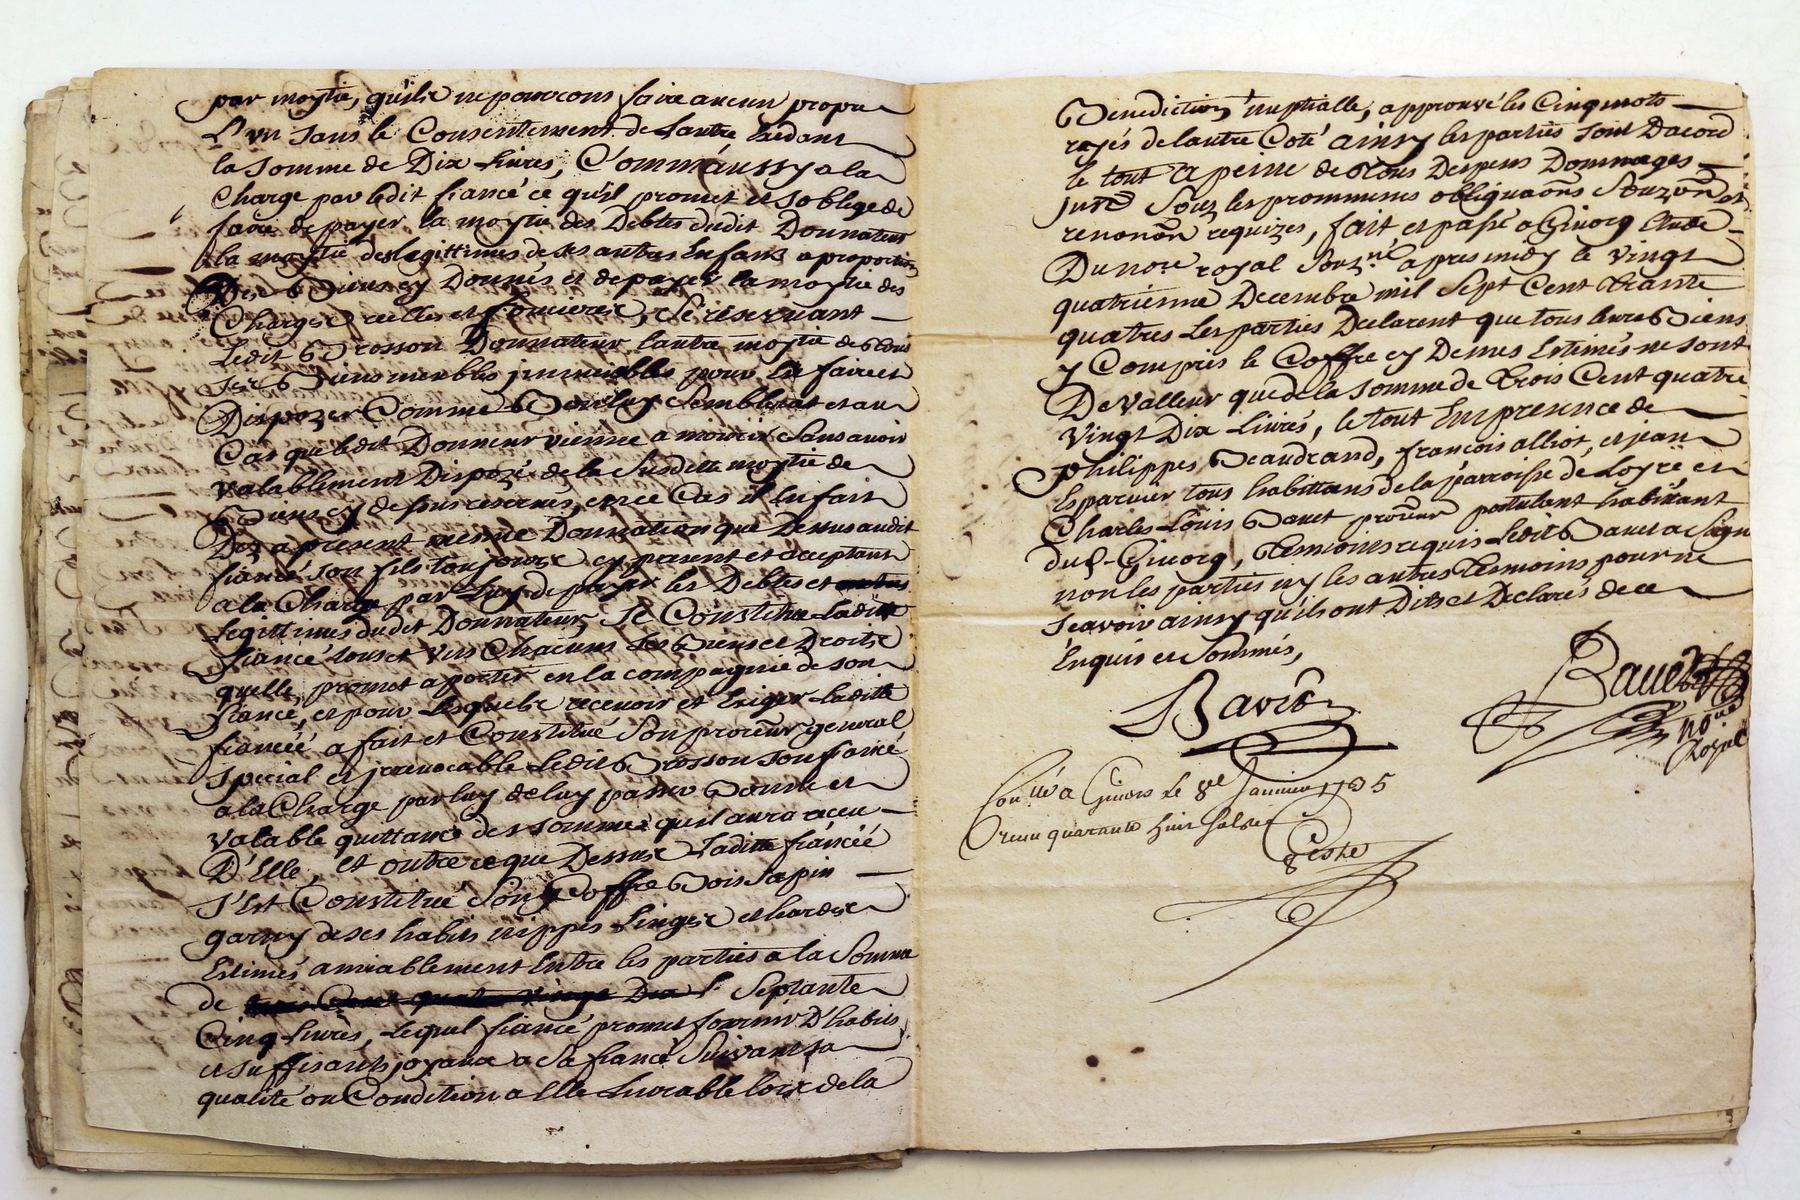 par moytié, qu'ils ne pourrons faire aucun propre
L'un sans le Consentement de Lautre Excédant
la somme de Dix Livres, Comm'aussy a la
Charge par ledit fiancé ce qu'il promet et s'oblige de
faire de payer la moytié des Debtes dudit Donnateur
la moytié des Legittimes de ses autres Enfans a proportion
Des Biens cy Donnés et de payer la moytié des
Charges reelles et foncieres, Se reservant
Ledit Brosson Donnateur l'autre moytié de tous
ses Biens meubles immeubles pour En faire et
Dispozer Comme Bon luy Semblerat et au
Cas que ledit Donneur vienne a mourir Sans avoir
valablement Dispozé de la Susditte moytié de
Biens cy dessus reservés, en ce Cas il En fait
Dez a present mesme Donnation que Dessus audit
fiancé son fils toujours cy present et acceptant
a la Charge par Luy de payer les Debtes et
Legittimes dudit Donnateur, Se Constitue Laditte
fiancée tous et Uns Chacuns Ses Biens et Droits
quelle promet aporter en la compagnie de son
fiancé, et pour Lesquels recevoir et Exiger Laditte
fiancéé a fait et Constitué Son procureur general
special et irrevocable Ledit Brosson son fiancé
a la Charge par luy de luy passer Bonne et
valable quittance des sommes qu'il aura receu
D'Elle, Et outre ce que Dessus Laditte fiancéé
s'Est Constitué Son Coffre Bois Sapin
garny de ses habits nippes Linges et hardes
Estimés amiablement Entre les parties a la Somme
de Septante
Cinq Livres, Lequel fiancé promet fournir D'habits
et suffisants joyaux a Sa fiancé Suivant sa
qualité ou Condition a Elle Livrable lors de la
Benediction nuptialle, approuvé les Cinq mots
rayés de lautre Coté ainsy les parties Sont Dacord
le tout a peine de tous Despens Dommages
Souz les prommesses obligaons
renonon requizes, fait et passé a Givorg Etude
Du nore royal apres midy le Vingt
quatrienme Decembre mil Sept Cent Trante
quatres Les parties Declarent que tous leurs Biens
y Compris le Coffre cy Dessus Estimés ne sont
De Valleur que de la somme de Trois Cent quatre
Vingt Dix Livres, le tout En presence de
philippes Beaudrand, françois alliot, et jean
Esparvier tous habittans de la parroisse de Loyre et
Charles Louis Bavet procureur postulant habittant
dud. Givorg, Temoins requis Ledit Bavet a Signé
non les parties ny les autres Temoins pour ne
Scavoir ainsy qu'ils ont Dits et Declarés de ce
Enquis et Sommés,
Bavet
nore
Royal
a Givors Le 8e Janvier 1735
Receu quarante huit sols